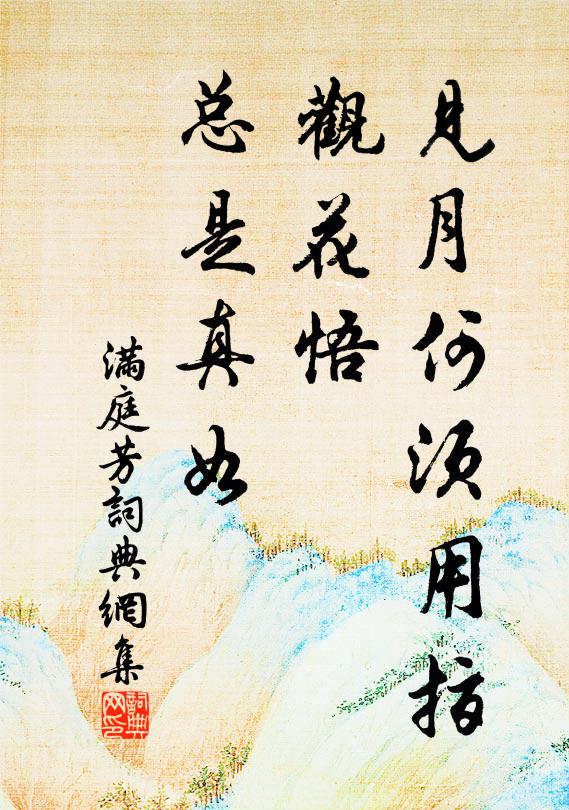 见月何须用指
觀花悟
总是真如
滿庭芳詞典網集
詞典
网印